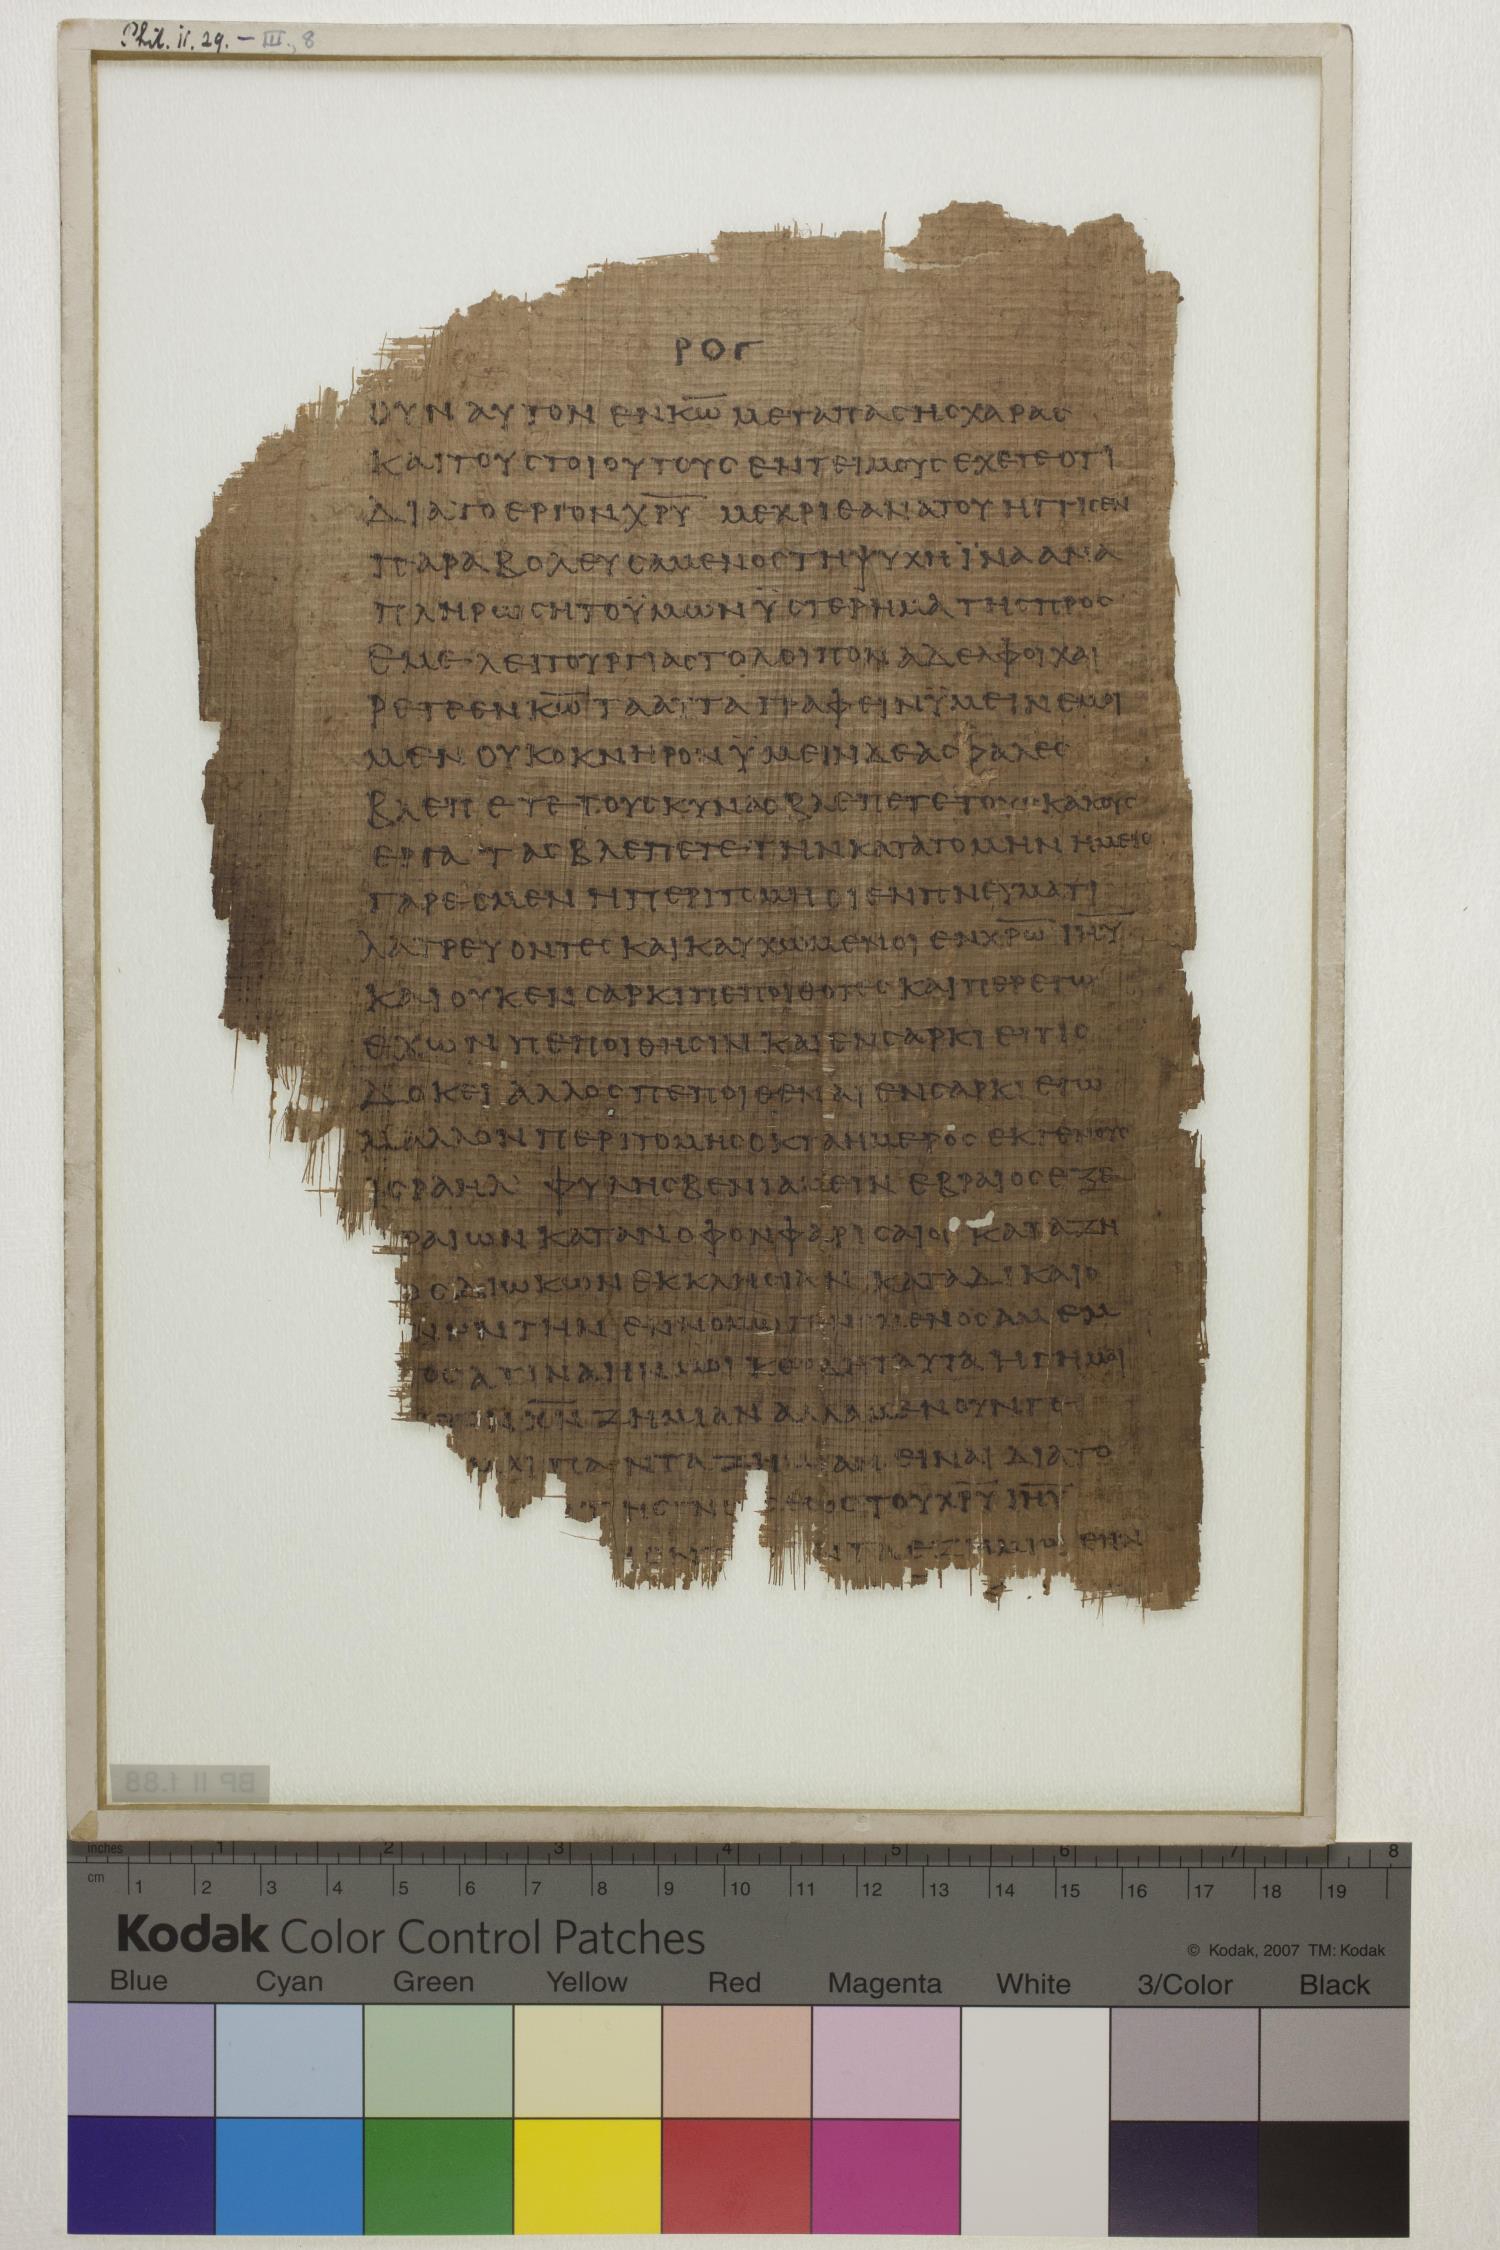 Phil. ii. 29. – III, 8
ΡΟΓ
ΟΥΝ ΑΥΤΟΝ ΕΝ Κ̅Ω̅ ΜΕΤΑ ΠΑΣΗΣ ΧΑΡΑΣ
ΚΑΙ ΤΟΥΣ ΤΟΙΟΥΤΟΥΣ ΕΝΤΕΙΜΟΥΣ ΕΧΕΤΕ ΟΤΙ
ΔΙΑ ΤΟ ΕΡΓΟΝ Χ̅Ρ̅Υ̅ ΜΕΧΡΙ ΘΑΝΑΤΟΥ ΗΓΓΙΣΕΝ
ΠΑΡΑΒΟΛΕΥΣΑΜΕΝΟΣ ΤΗ ΨΥΧΗ ΪΝΑ ΑΝΑ
ΠΛΗΡΩΣΗ ΤΟ ΫΜΩΝ ΫΣΤΕΡΗΜΑ ΤΗΣ ΠΡΟΣ
ΕΜΕ ΛΕΙΤΟΥΡΓΙΑΣ ΤΟ ΛΟΙΠΟΝ ΑΔΕΛΦΟΙ ΧΑΙ
ΡΕΤΕ ΕΝ Κ̅Ω̅ ΤΑ ΑΥΤΑ ΓΡΑΦΕΙΝ ΫΜΕΙΝ ΕΜΟΙ
ΜΕΝ ΟΥΚ ΟΚΝΗΡΟΝ ΫΜΕΙΝ ΔΕ ΑΣΦΑΛΕΣ
ΒΛΕΠΕΤΕ ΤΟΥΣ ΚΥΝΑΣ ΒΛΕΠΕΤΕ ΤΟΥΣ ΚΑΚΟΥΣ
ΕΡΓΑΤΑΣ ΒΛΕΠΕΤΕ ΤΗΝ ΚΑΤΑΤΟΜΗΝ ΗΜΕΙΣ
ΓΑΡ ΕΣΜΕΝ Η ΠΕΡΙΤΟΜΗ ΟΙ ΕΝ ΠΝΕΥΜΑΤΙ
ΛΑΤΡΕΥΟΝΤΕΣ ΚΑΙ ΚΑΥΧΩΜΕΝΟΙ ΕΝ Χ̅Ρ̅Ω̅ Ι̅Η̅Υ̅
ΚΑΙ ΟΥΚ ΕΝ ΣΑΡΚΙ ΠΕΠΟΙΘΟΤΕΣ ΚΑΙΠΕΡ ΕΓΩ
ΕΧΩΝ ΠΕΠΟΙΘΗΣΙΝ ΚΑΙ ΕΝ ΣΑΡΚΙ ΕΙ ΤΙΣ
ΔΟΚΕΙ ΑΛΛΟΣ ΠΕΠΟΙΘΕΝΑΙ ΕΝ ΣΑΡΚΙ ΕΓΩ
ΜΑΛΛΟΝ ΠΕΡΙΤΟΜΗΣ ΟΚΤΑΗΜΕΡΟΣ ΕΚ ΓΕΝΟΥΣ
ΙΣΡΑΗΛ ΦΥΛΗΣ ΒΕΝΙΑΜΕΙΝ ΕΒΡΑΙΟΣ ΕΞ Ε
ΡΑΙΩΝ ΚΑΤΑ ΝΟΜΟΝ ΦΑΡΙΣΑΙΟΣ ΚΑΤΑ ΖΗ
ΟΣ ΔΙΩΚΩΝ ΕΚΚΛΗΣΙΑΝ ΚΑΤΑ ΔΙΚΑΙΟ
ΝΗΝ ΤΗΝ ΕΝ ΝΟΜΩ ΓΕΝΟΜΕΝΟΣ ΑΜΕΜ
ΟΣ ΑΤΙΝΑ ΗΝ ΜΟΙ ΚΕΡΔΗ ΤΑΥΤΑ ΗΓΗΜΑΙ
ΤΟΝ Χ̅Ρ̅Ν̅ ΖΗΜΙΑΝ ΑΛΛΑ ΜΕΝΟΥΝΓΕ
ΜΑΙ ΠΑΝΤΑ ΖΗΜΙΑΝ ΕΙΝΑΙ ΔΙΑ ΤΟ
ΤΗΣ ΓΝΩΣΕΩΣ ΤΟΥ Χ̅Ρ̅Υ̅ Ι̅Η̅Υ̅
ΝΤΑ ΕΖΗΜΙΩΘΗΝ
BP II f.88
inches 1 2 3 4 5 6 7 8
cm 1 2 3 4 5 6 7 8 9 10 11 12 13 14 15 16 17 18 19
Kodak Color Control Patches
© Kodak, 2007 TM: Kodak
Blue Cyan Green Yellow Red Magenta White 3/Color Black